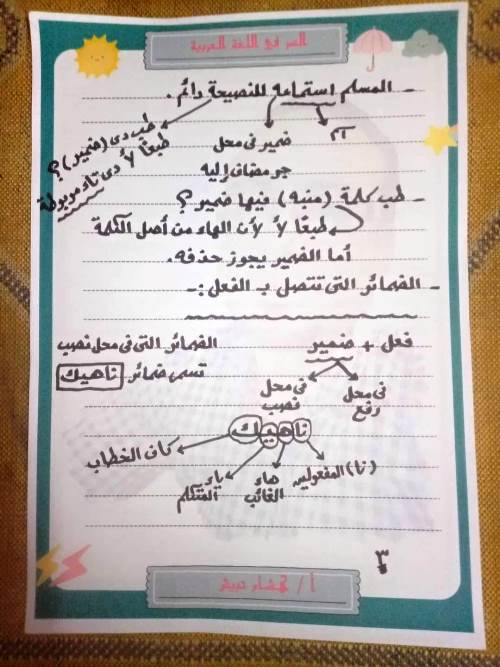 السر في اللغة العربية
- المسلم استماعه للنصيحة دائم.
اسم
ضمير فى محل
جر مضاف إليه
طب دى (ضمير)؟
طبعًا لأ دى تاء مربوطة
- طب كلمة (منبه) فيها ضمير؟
طبعًا لا لأن الهاء من أصل الكلمة
أما الضمير يجوز حذفه.
- الضمائر التى تتصل بـ الفعل :-
فعل + ضمير
فى محل رفع
فى محل نصب
الضمائر التى فى محل نصب
تسمى ضمائر ناهيك
ناهيك
(نا) المفعولين
هاء الغائب
ياء المتكلم
كاف الخطاب
٣
أ /